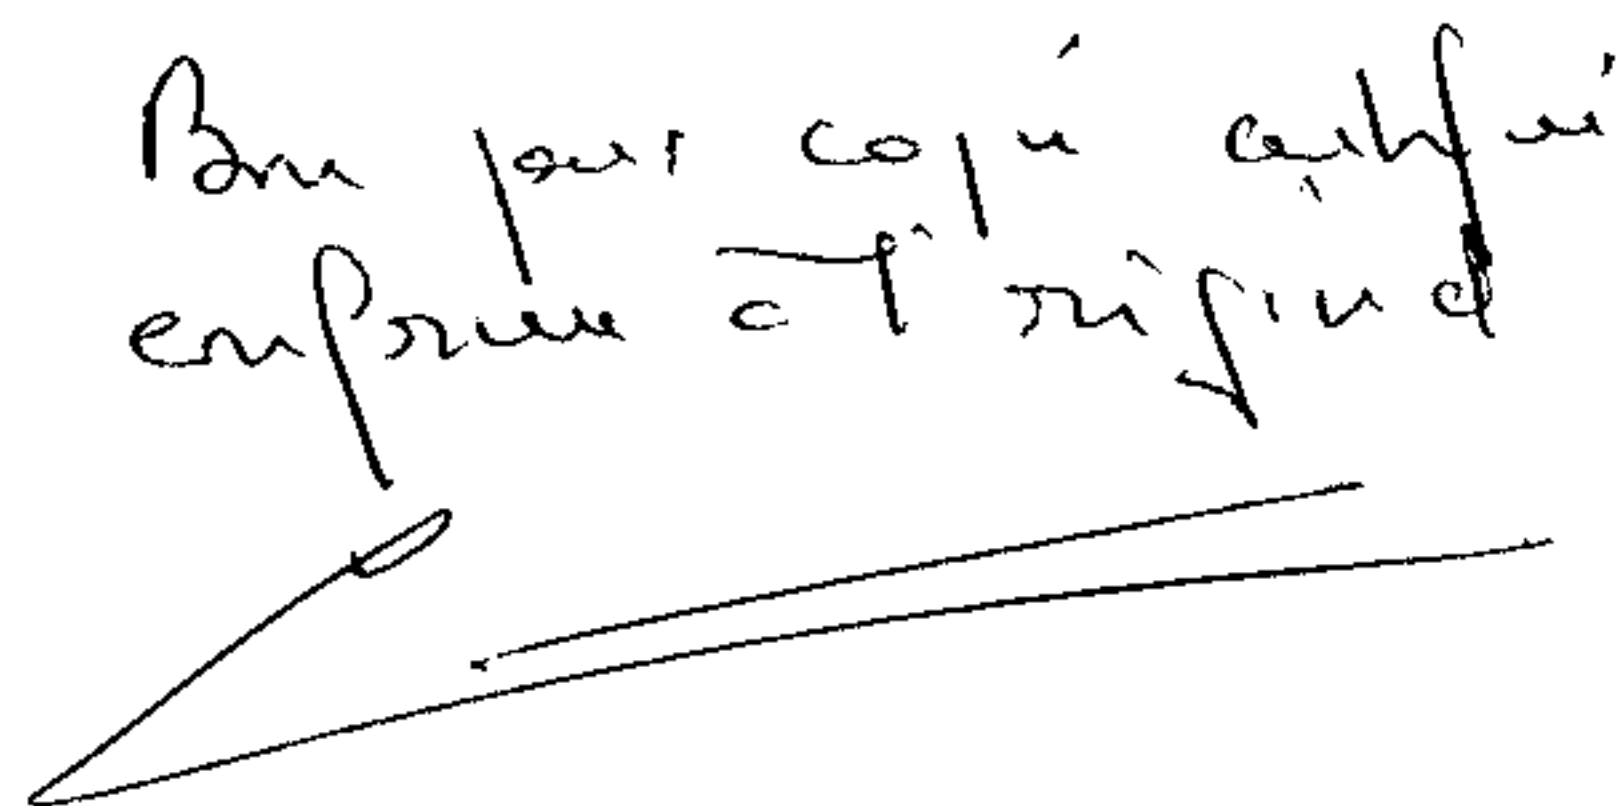 Bon pour copie certifiée
conforme à l'original